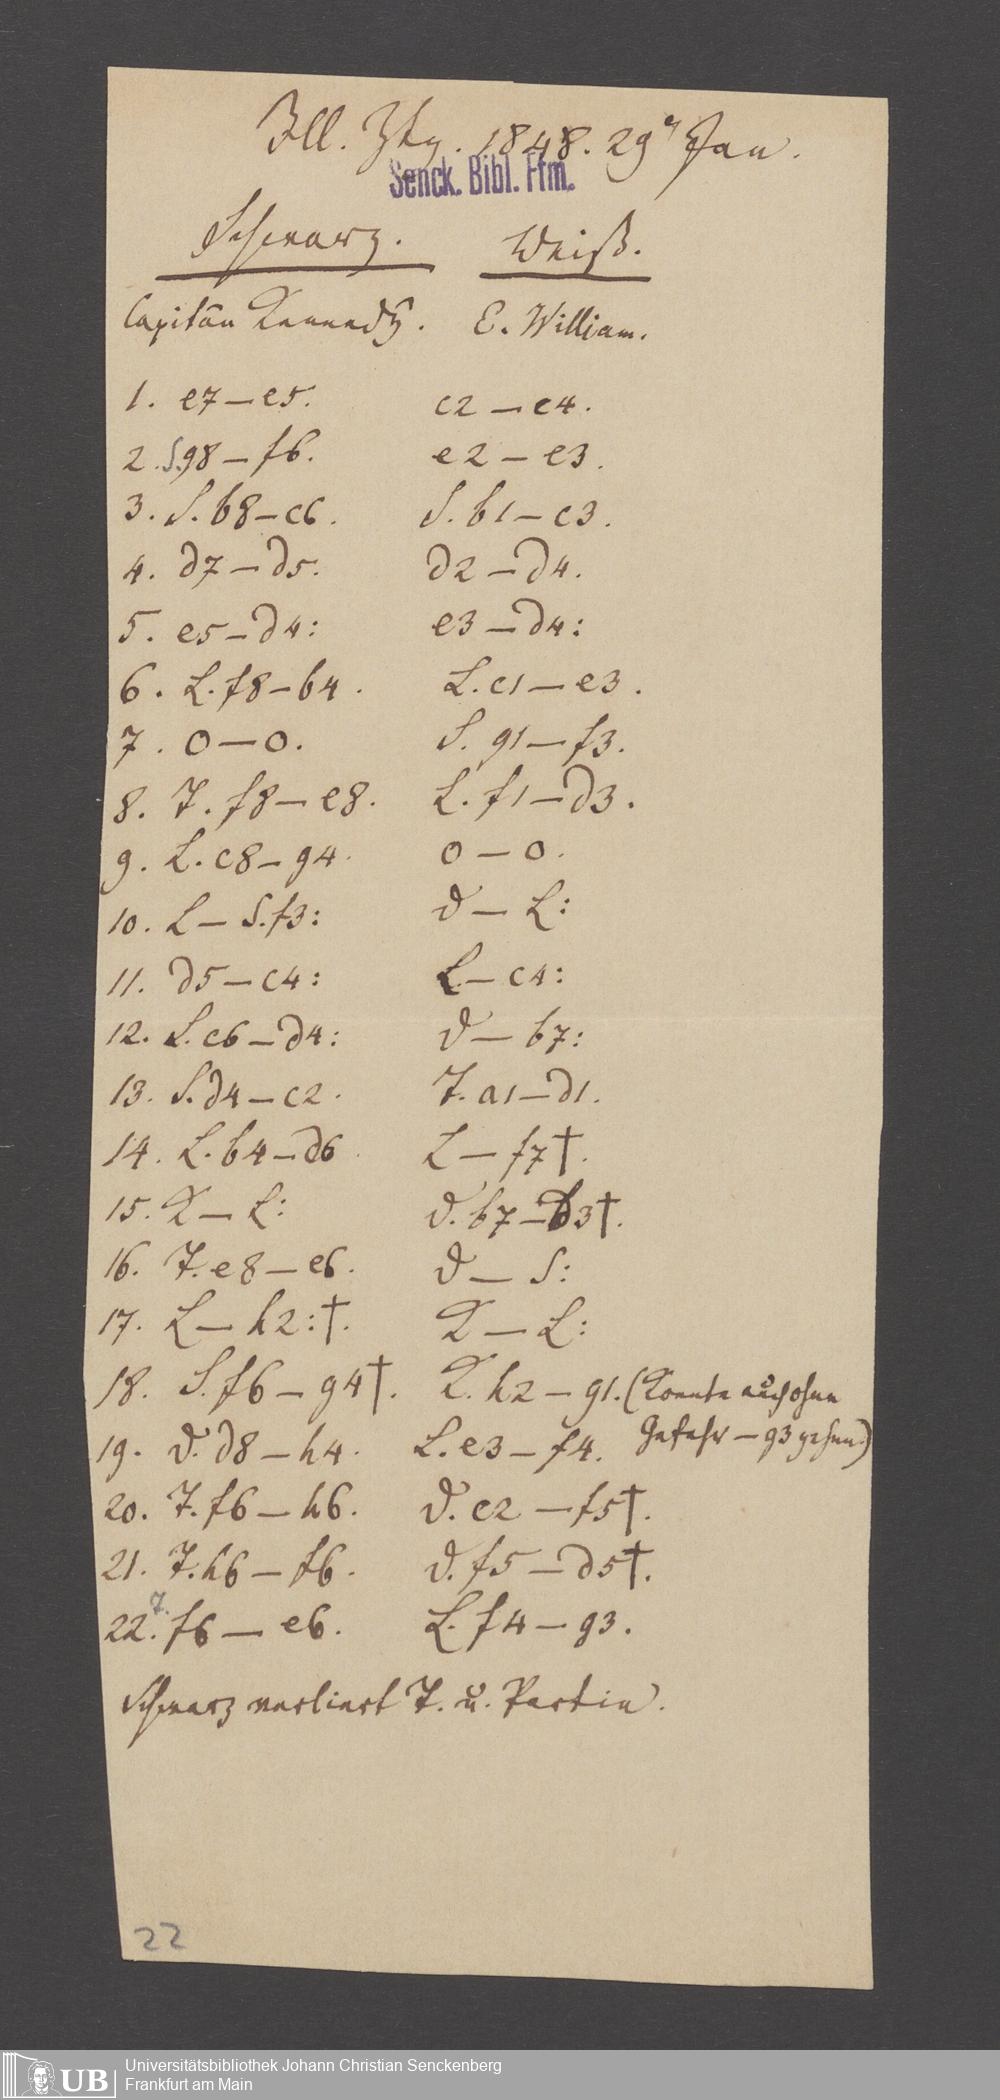 Ill. Ztg. 1848. 29r Jan.
Senck. Bibl. Ffm.
Schwarz. Weiß.
Capitän Kennedy. E. William.
1. e7 — e5. c2 — c4.
2. S. g8 — f6. e2 — e3.
3. S. b8 — c6. S. b1 — c3.
4. d7 — d5. d2 — d4.
5. e5 — d4: e3 — d4:
6. L. f8 — b4. L. c1 — e3.
7. 0 — 0. S. g1 — f3.
8. T. f8 — e8. L. f1 — d3.
9. L. c8 — g4. 0 — 0.
10. L — S. f3: D — L:
11. d5 — c4: L — c4:
12. S. c6 — d4: D — b7:
13. S. d4 — c2. T. a1 — d1.
14. L. b4 — d6. L — f7†.
15. K — L: D. b7 — b3†.
16. T. e8 — e6. D — S:
17. L — h2:†. K — L:
18. S. f6 — g4†. K. h2 — g1. (Konnte auch ohne
Gefahr — g3 gehen.)
19. D. d8 — h4. L. e3 — f4.
20. T. f6 — h6. D. c2 — f5†.
21. T. h6 — f6. D. f5 — d5†.
22. T. f6 — e6. L. f4 — g3.
Schwarz verliert T. u. Partie.
22
UB
Universitätsbibliothek Johann Christian Senckenberg
Frankfurt am Main